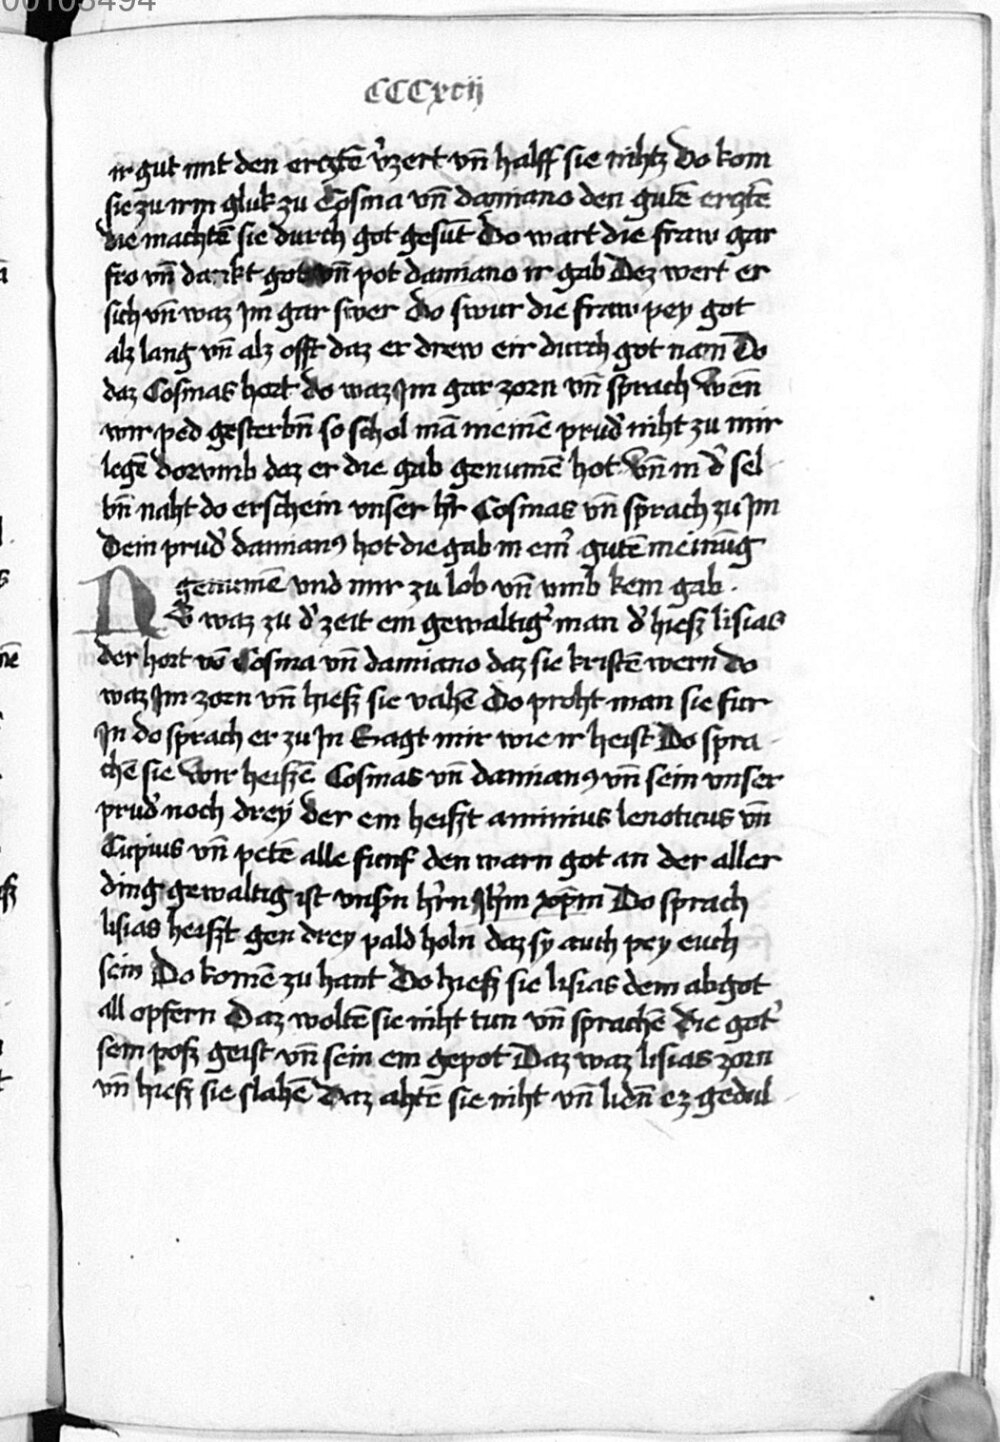 00103494
CCCxcij
ir gut mit den ercztē v̉zert vn̄ halff sie nihtz Do kom
sie zu irm gluk zu Cosma vn̄ damiano den gutē erztē
die machtē sie durch got gesūt Do wart die fraw gar
fro vn̄ dankt got vn̄ pot damiano ir gab Dez wert er
sich vn̄ waz Jm gar swer do swur die fraw pey got
alz lang vn̄ alz offt daz er drew eir durch got nam Do
daz Cosmas hort do waz Jm gar zorn vn̄ sprach Wen̄
wir ped gesterbn̄ so schol mā meinē prud̉ niht zu mir
legē dorvmb daz er die gab genumē hot Vn̄ in d̉ sel
bn̄ naht do erschein vnser h̉r Cosmas vn̄ sprach zu Jm
Dein prud̉ damianꝰ hot die gab in ein̉ gutē meinūg
genumē vnd mir zu lob vn̄ vmb kein gab
NV waz zu d̉ zeit ein gewaltig̉ man d̉ hiesz lisias
der hort vō Cosma vn̄ damiano daz sie kristē wern do
waz Jm zorn vn̄ hiesz sie vahē Do proht man sie fur
Jn do sprach er zu Jn Sagt mir wie ir heist Do spra
chē sie Wir heiszē Cosmas vn̄ damianꝰ vn̄ sein vnser
prud̉ noch drey der ein heiszt aminius lenoticus vn̄
Cupius vn̄ petē alle funf den warn got an der aller
ding gewaltig ist vnsn̉ h̉rn Jh̄m xp̄m Do sprach
lisias heiszt gen drey pald holn daz sy auch pey euch
sein Do komē zu hant Do hiesz sie lisias dem abgot
all opfern Daz woltē sie niht tun vn̄ sprachē die got̉
sein posz geist vn̄ sein ein gepot Daz waz lisias zorn
vn̄ hiesz sie slahē Daz ahtē sie niht vn̄ lidn̄ ez gedul